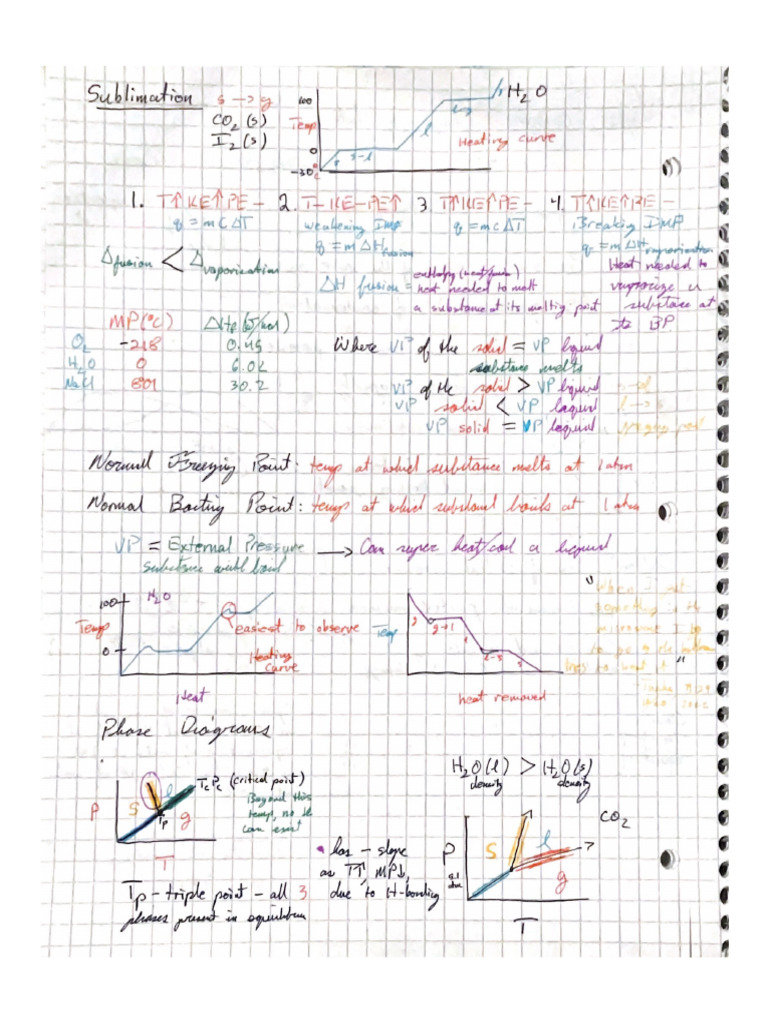 Sublimation s → g
CO₂ (s)
I₂ (s)
100
Temp
0
-30°
s
s-l
l
l-g
H₂O
Heating curve
1. T↑ KE↑ PE - 2. T- KE- PE↑ 3 T↑ KE↑ PE - 4. T↑ KE↑ PE -
q = mCΔT weakening IMP q = mCΔT Breaking IMP
q = mΔHfusion q = mΔHvaporization
Δfusion < Δvaporization
ΔH fusion = heat needed to melt
a substance at its melting point
Heat needed to
vaporize a
substance at
its BP
MP (°C) ΔHf (kJ/mol)
O₂ -218 0.45
H₂O 0 6.02
NaCl 801 30.2
Where VP of the solid = VP liquid
substance melts
VP of the solid > VP liquid s → l
VP solid < VP liquid l → s
VP solid = VP liquid
Normal Freezing Point: temp at which substance melts at 1 atm
Normal Boiling Point: temp at which substance boils at 1 atm
VP = External Pressure → Can super heat/cool a liquid
substance will boil
100
H₂O
Temp
0
easiest to observe
Heating
curve
Heat
Temp
g
g→l
l
l-s
s
heat removed
"When I eat
something in the
Phase Diagrams
P
S
l
g
Tp
T
Tc Pc (critical point)
Beyond this
temp, no l
can exist
H₂O(l) > H₂O(s)
density density
• has - slope
as T↑, MP↓,
due to H-bonding
Tp - triple point - all 3
phases present in equilibrium
P
S
l
g
T
CO₂